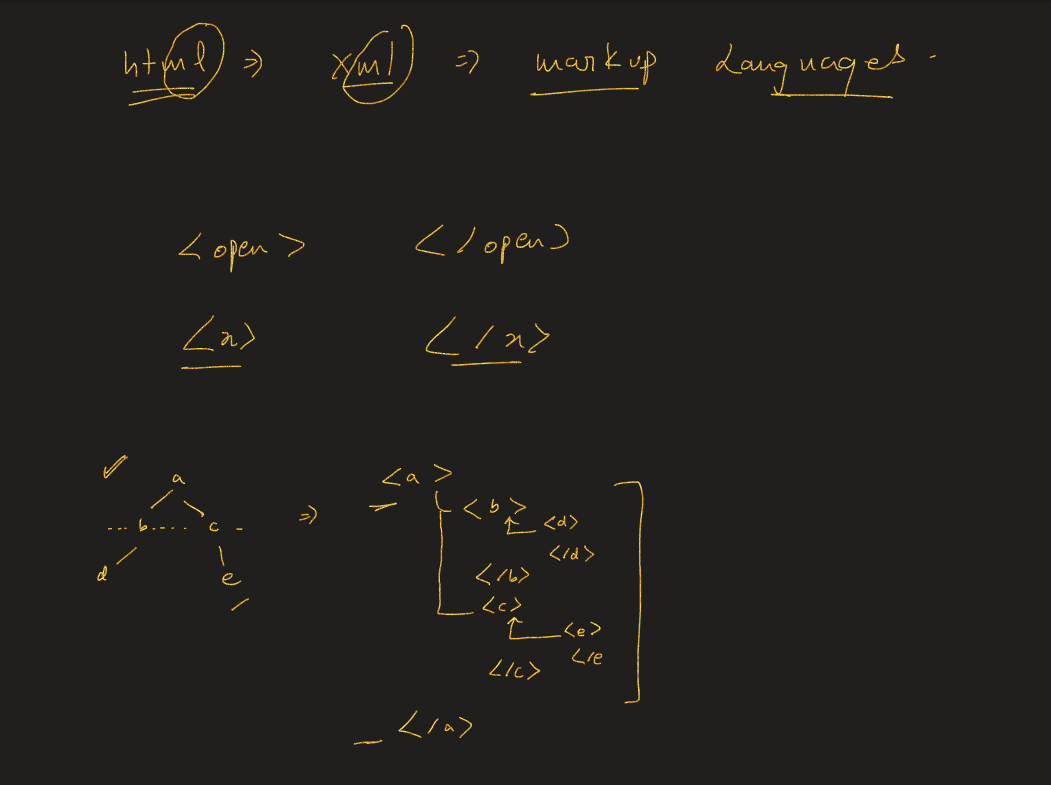 html ⇒ xml ⇒ markup Languages.
<open> </open>
<x> </x>
a
b c
d e
⇒
<a>
<b>
<d>
</d>
</b>
<c>
<e>
</e
</c>
</a>